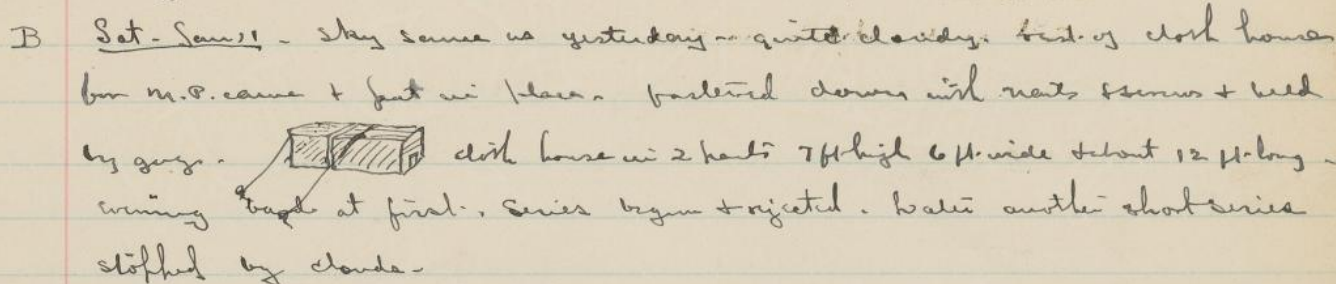 B Sat- Jan 31 - Sky same as yesterday - quite cloudy. Rest of cloth house
for M.P. came & put in place. fastened down with nails & screws & held
by guys. cloth house in 2 parts 7 ft high 6 ft. wide & about 12 ft. long -
evening bad at first. Series begun & rejected. Later another short series
stopped by clouds-